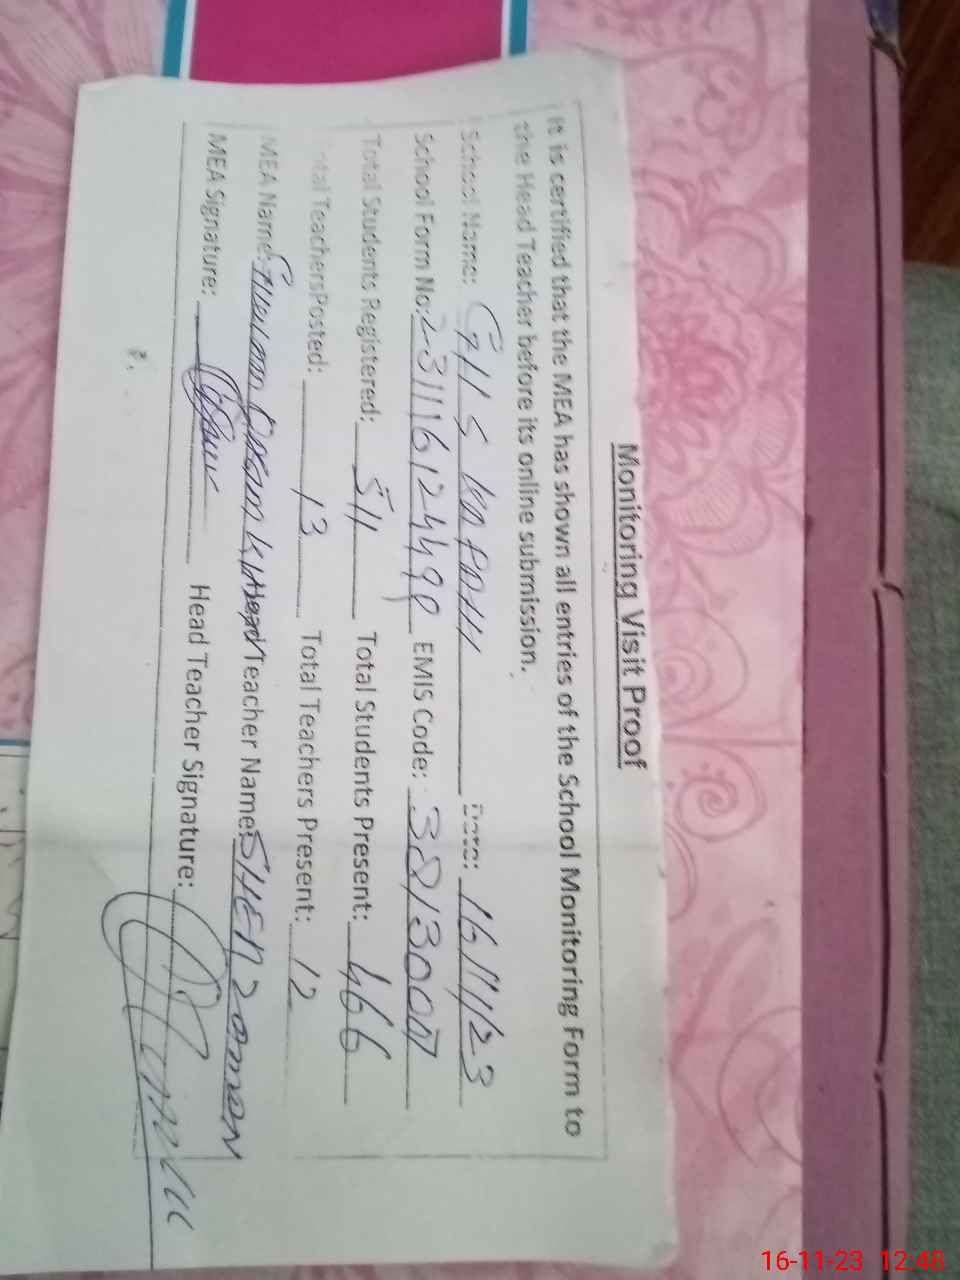 Monitoring Visit Proof
It is certified that the MEA has shown all entries of the School Monitoring Form to
the Head Teacher before its online submission.
School Name: GHS Date: 16/11/23
School Form No: EMIS Code:
Total Students Registered: 511 Total Students Present: 466
Total Teachers Posted: 13 Total Teachers Present: 12
MEA Name: Head Teacher Name: SHER ZAMAN
MEA Signature: Head Teacher Signature:
16-11-23 12:48